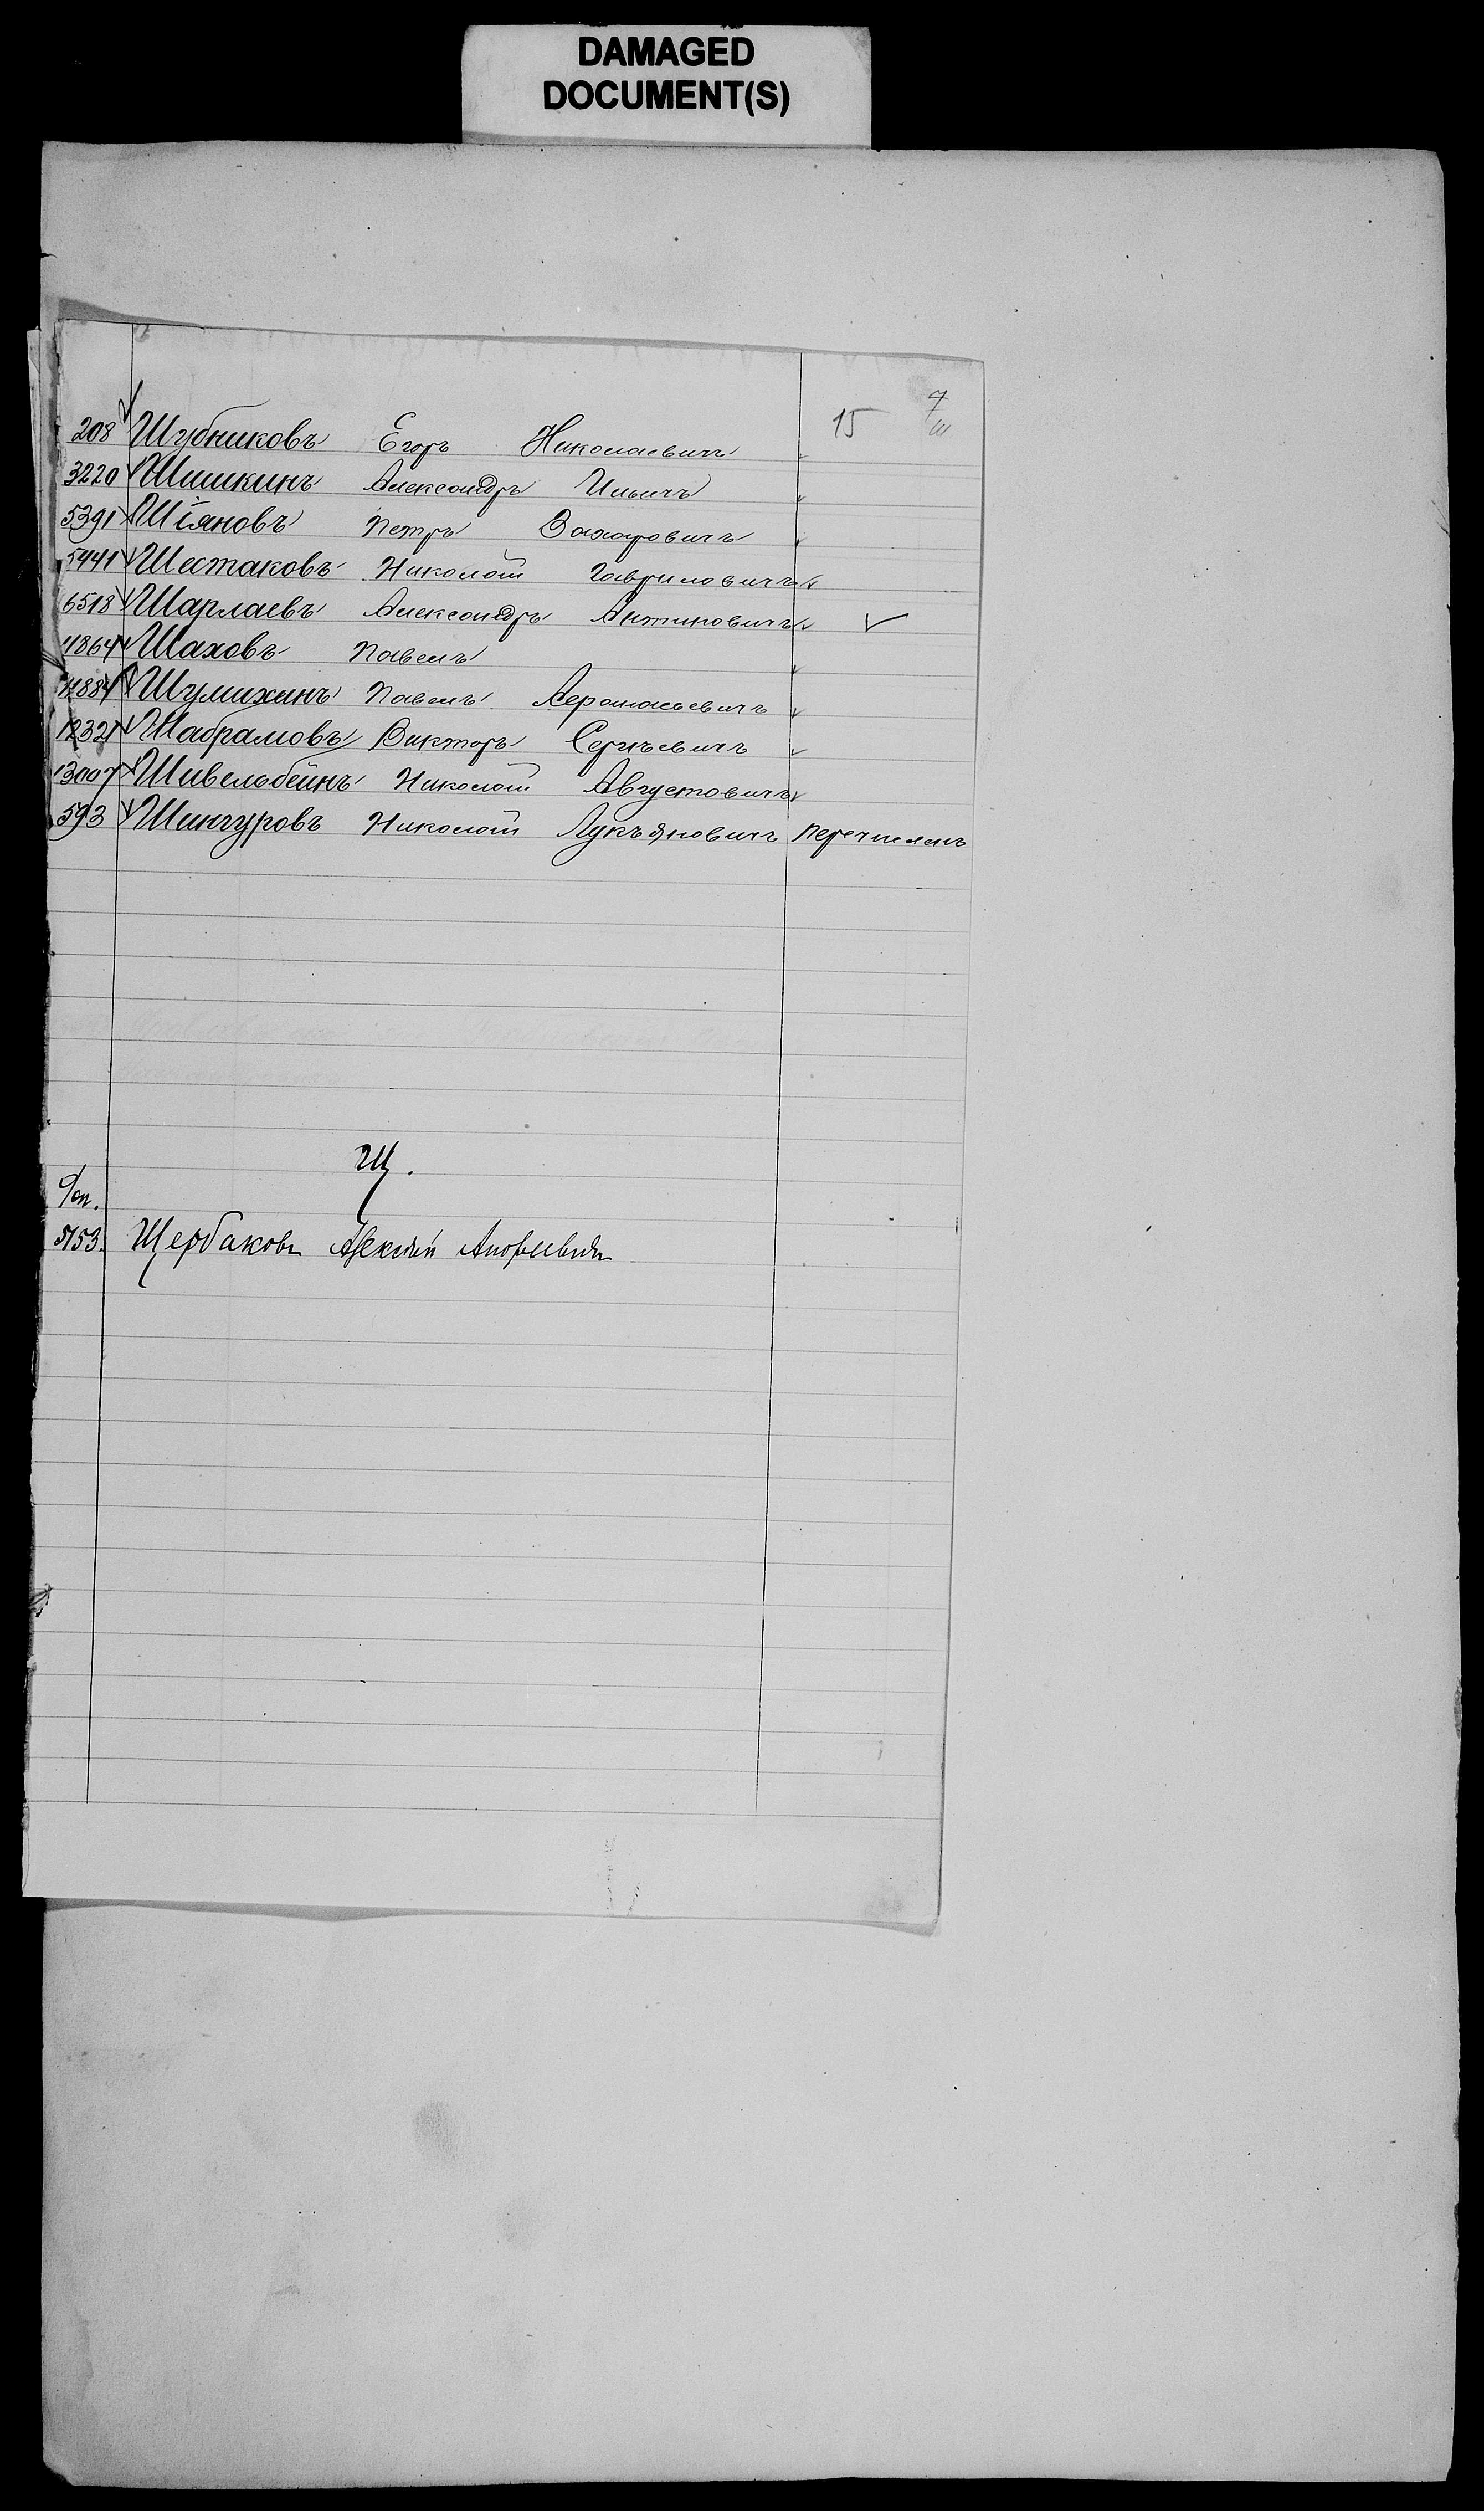 DAMAGED
DOCUMENT(S)
15 7/III
208 Шубниковъ Егоръ Николаевичъ
3220 Шишкинъ Александръ Ильичъ
5391 Шіяновъ Петръ Захаровичъ
5441 Шестаковъ Николай Гавриловичъ
6518 Шарлаевъ Александръ Антиповичъ
11864 Шаховъ Павелъ
11884 Шумихинъ Павелъ Афанасьевичъ
12321 Шабрамовъ Викторъ Сергѣевичъ
13007 Шивельбейнъ Николай Августовичъ
593 Шингуровъ Николай Лукъяновичъ перечисленъ
Щ.
5153. Щербаковъ Алексѣй